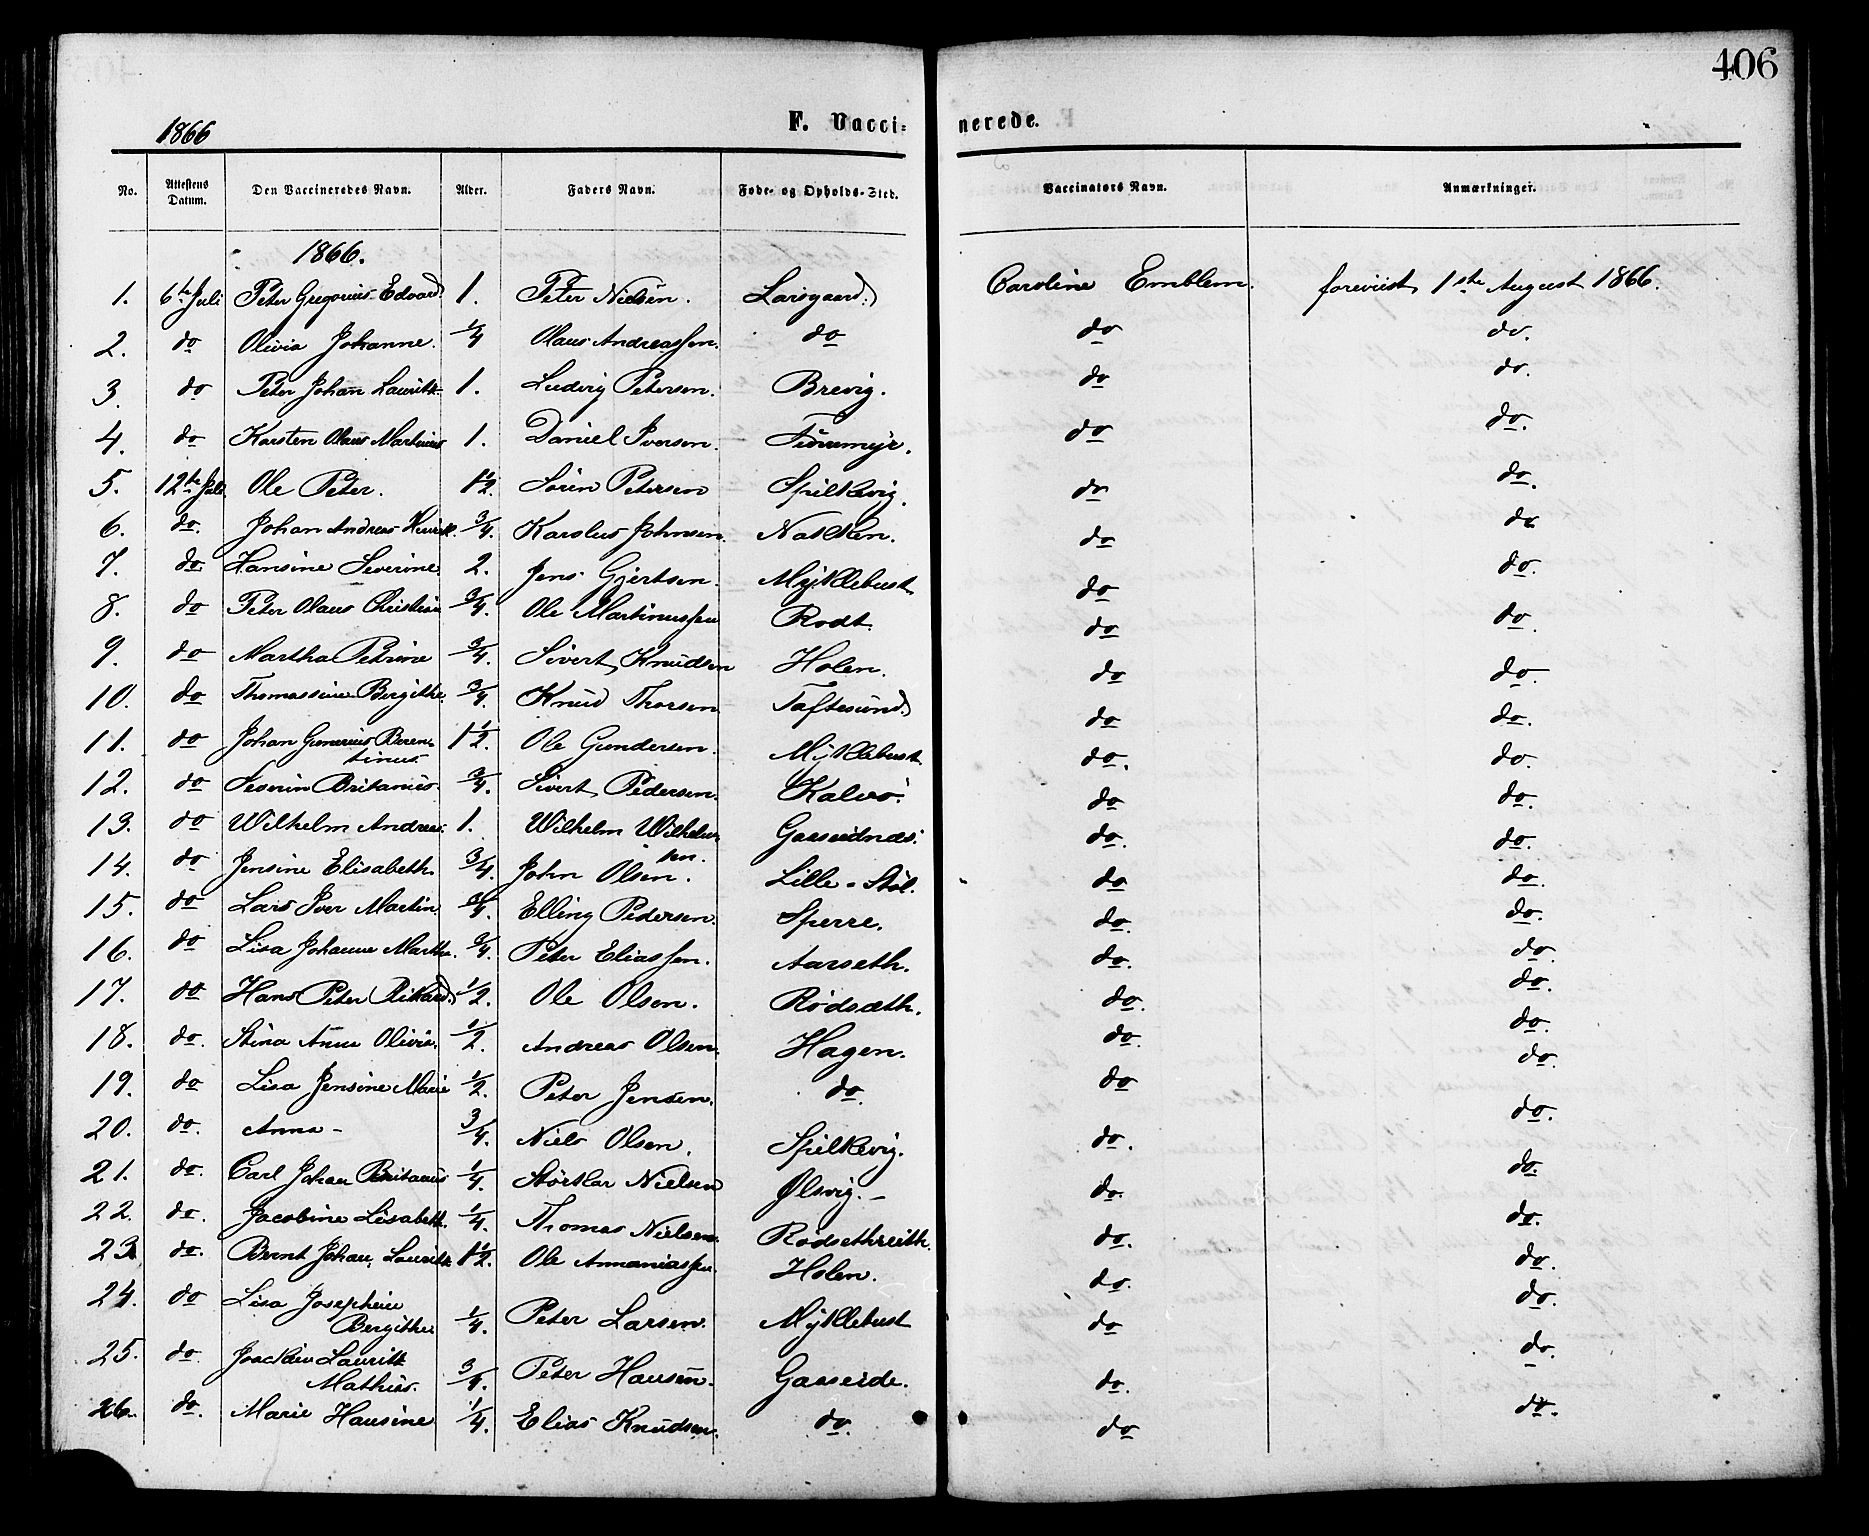 406
1866
F. Vacci= nerede.
No. Attestens Datum. Den Vaccineredes Navn. Alder. Faders Navn. Føde- og Opholds-Sted. Vaccinatørs Navn. Anmærkninger.
1866.
1. 6te Juli Peter Gregorius Edvard 1. Peter Nielsen. Larsgaard. Caroline Emblem. foreviist 1ste August 1866.
2. do Olivia Johanne. 1/4 Olaus Andreassen. do do do.
3. do Peter Johan Lauritz 1. Ludvig Petersen. Brevig. do do.
4. do Karsten Olaus Martinius 1. Daniel Iversen. do do.
5. 12te Juli Ole Peter. 1 1/2. Sören Petersen Spilkevig. do do.
6. do. Johan Andreas Henrik. 3/4. Karolus Johnsen. Nakken. do do
7. do Hansine Severine. 2. Jens Gjertsen. Myklebust do do.
8. do Peter Olaus Christian 3/4. Ole Martinussen Rodt. do do.
9. do Martha Petrine 3/4. Sivert Knudsen Holen. do do.
10. do Thomassine Bergithe. 3/4. Knud Thorsen Taftesund do do.
11. do Johan Gunerius Beren- 1 1/2. Ole Gundersen. Myklebust do. do.
tinus.
12. do Severin Britanius. 3/4. Sivert Pedersen. Kalvø. do do.
13. do Wilhelm Andreas. 1. Wilhelm Wilhelm- Gaaseidnæs. do. do.
sen.
14. do Jensine Elisabeth 3/4. John Olsen. Lille-Støl. do do.
15. do Lars Iver Martin. 3/4. Elling Pedersen. Sperre. do. do.
16. do Lisa Johanne Marthe. 3/4. Peter Eliassen. Aarseth. do. do.
17. do Hans Peter Rikard. 1/2. Ole Olsen. Rødsæth. do. do.
18. do. Stina Anne Olivie. 1/2. Andreas Olsen. Hagen. do. do.
19. do Lisa Jensine Marie 1/2. Peter Jensen. do. do do.
20. do. Anna - 3/4. Niels Olsen. Spilkevig. do. do.
21. do. Carl Johan Britanius 1/4. Størkar Nielsen Ølsvig. - do. do.
22. do. Jacobine Lisabeth. 1/4. Thomas Nielsen. Rodsethreith. do. do.
23. do. Bernt Johan Lauritz 1 1/2. Ole Annaniassen. Holen. do. do.
24. do Lisa Josephine
Bergithe 1/4. Peter Larsen. Myklebust do do.
25. do. Joachim Lauritz
Mathias. 3/4. Peter Hansen. Gaaseide. do. do.
26. do. Marie Hansine 1/4. Elias Knudsen. do. do do.